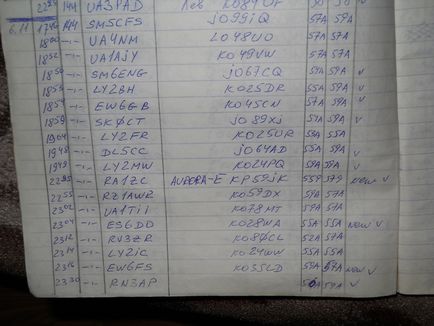 2224 144 UA3PAD KO84 59 59
6.11 1746 144 SM5CFS JO99iQ 57A 59A
1800 -"- UA4NM LO48UO 55A 55A
1852 -"- UA1AJY KO49VW 57A 55A v
1850 -"- SM6ENG JO67CQ 59A 59A v
1855 -"- LY2BH KO25DR 55A 55A v
1857 -"- EW6GB KO45CN 57A 59A v
1859 -"- SK0CT JO89XJ 55A 59A v
1904 -"- LY2FR KO25UR 55A 55A
1948 -"- DL5CC JO64AD 55A 55A v
1949 -"- LY2MW KO24PQ 59A 59A v
2225 -"- RA1ZC AURORA-E KP59JK 559 579 NEW v
2255 -"- RZ1AWR KO59DX 55A 59A
2302 -"- UA1Tii KO78MT 59A 55A
2304 -"- ES6DO KO28WA 55A 55A NEW v
2312 -"- RV3ZR KO80CL 52A 57A
2314 -"- LY2iC KO24WW 55A 55A v
2316 -"- EW6FS KO35LD 55A 59A NEW v
2330 -"- RN3AP 59A v